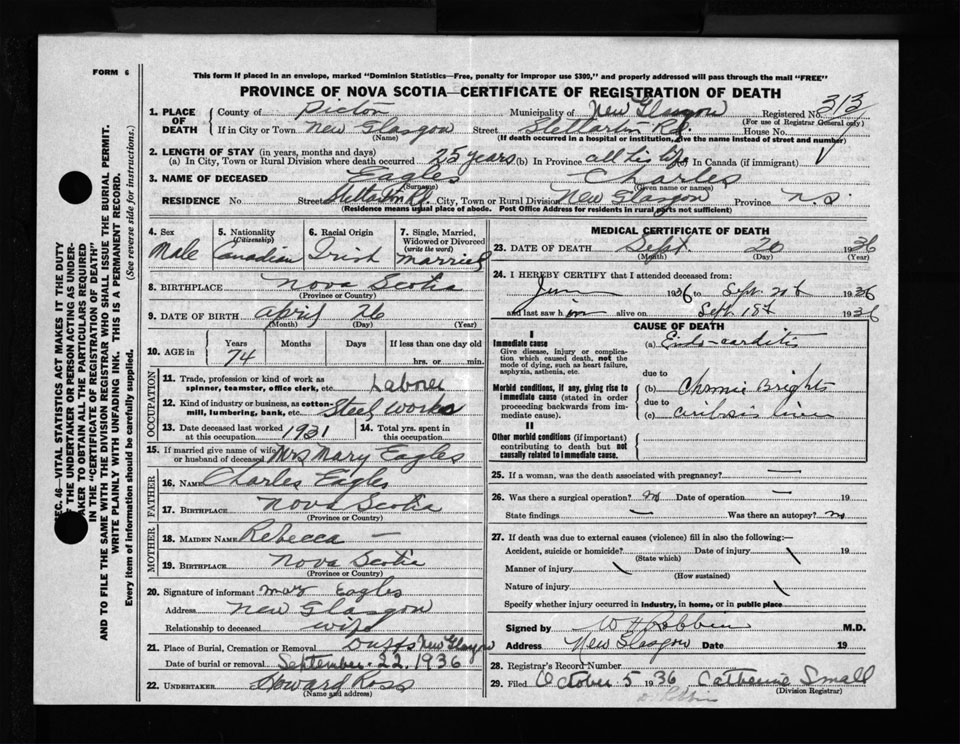 FORM 6
This form if placed in an envelope, marked "Dominion Statistics—Free, penalty for improper use $300," and properly addressed will pass through the mail "FREE"
PROVINCE OF NOVA SCOTIA—CERTIFICATE OF REGISTRATION OF DEATH
1. PLACE OF DEATH
County of Pictou Municipality of New Glasgow Registered No. 313
(For use of Registrar General only)
If in City or Town New Glasgow Street Stellarton Rd. House No.
(Name) (If death occurred in a hospital or institution, give the name instead of street and number)
2. LENGTH OF STAY (in years, months and days)
(a) In City, Town or Rural Division where death occurred 25 years (b) In Province all his life In Canada (if immigrant)
3. NAME OF DECEASED Eagles Charles
(Surname) (Given name or names)
RESIDENCE No. Street Stellarton Rd. City, Town or Rural Division New Glasgow Province N.S.
(Residence means usual place of abode. Post Office Address for residents in rural parts not sufficient)
4. Sex Male
5. Nationality (Citizenship) Canadian
6. Racial Origin Irish
7. Single, Married, Widowed or Divorced (write the word) married
8. BIRTHPLACE Nova Scotia
(Province or Country)
9. DATE OF BIRTH April 26
(Month) (Day) (Year)
10. AGE in Years Months Days If less than one day old
74 hrs. or min.
OCCUPATION
11. Trade, profession or kind of work as spinner, teamster, office clerk, etc. Laborer
12. Kind of industry or business, as cotton-mill, lumbering, bank, etc. Steel Works
13. Date deceased last worked at this occupation 1931
14. Total yrs. spent in this occupation
15. If married give name of wife or husband of deceased Mrs Mary Eagles
FATHER
16. NAME Charles Eagles
17. BIRTHPLACE Nova Scotia
(Province or Country)
MOTHER
18. MAIDEN NAME Rebecca —
19. BIRTHPLACE Nova Scotia
(Province or Country)
20. Signature of informant Eagles
Address New Glasgow
Relationship to deceased wife
21. Place of Burial, Cremation or Removal Duffs New Glasgow
Date of burial or removal September 22, 1936
22. UNDERTAKER Howard Ross
(Name and address)
MEDICAL CERTIFICATE OF DEATH
23. DATE OF DEATH Sept. 20 1936
(Month) (Day) (Year)
24. I HEREBY CERTIFY that I attended deceased from:
1936 to Sept. 20th 1936
and last saw him alive on Sept 18th 1936
CAUSE OF DEATH
I
Immediate cause
Give disease, injury or complication which caused death, not the mode of dying, such as heart failure, asphyxia, asthenia, etc.
(a) Endo-carditis
due to
Morbid conditions, if any, giving rise to immediate cause (stated in order proceeding backwards from immediate cause).
(b) Chronic Brights
due to
(c) liver
II
Other morbid conditions (if important) contributing to death but not causally related to immediate cause.
25. If a woman, was the death associated with pregnancy? —
26. Was there a surgical operation? no Date of operation — 19
State findings — Was there an autopsy? no
27. If death was due to external causes (violence) fill in also the following:—
Accident, suicide or homicide? Date of injury 19
(State which)
Manner of injury
(How sustained)
Nature of injury
Specify whether injury occurred in industry, in home, or in public place
Signed by M.D.
Address New Glasgow Date 19
28. Registrar's Record Number
29. Filed October 5 1936 Catherine Small
(Division Registrar)
SEC. 46—VITAL STATISTICS ACT MAKES IT THE DUTY
OF THE UNDERTAKER OR PERSON ACTING AS UNDERTAKER TO OBTAIN ALL THE PARTICULARS REQUIRED
IN THE "CERTIFICATE OF REGISTRATION OF DEATH"
AND TO FILE THE SAME WITH THE DIVISION REGISTRAR WHO SHALL ISSUE THE BURIAL PERMIT.
WRITE PLAINLY WITH UNFADING INK. THIS IS A PERMANENT RECORD.
Every item of information should be carefully supplied. (See reverse side for instructions.)